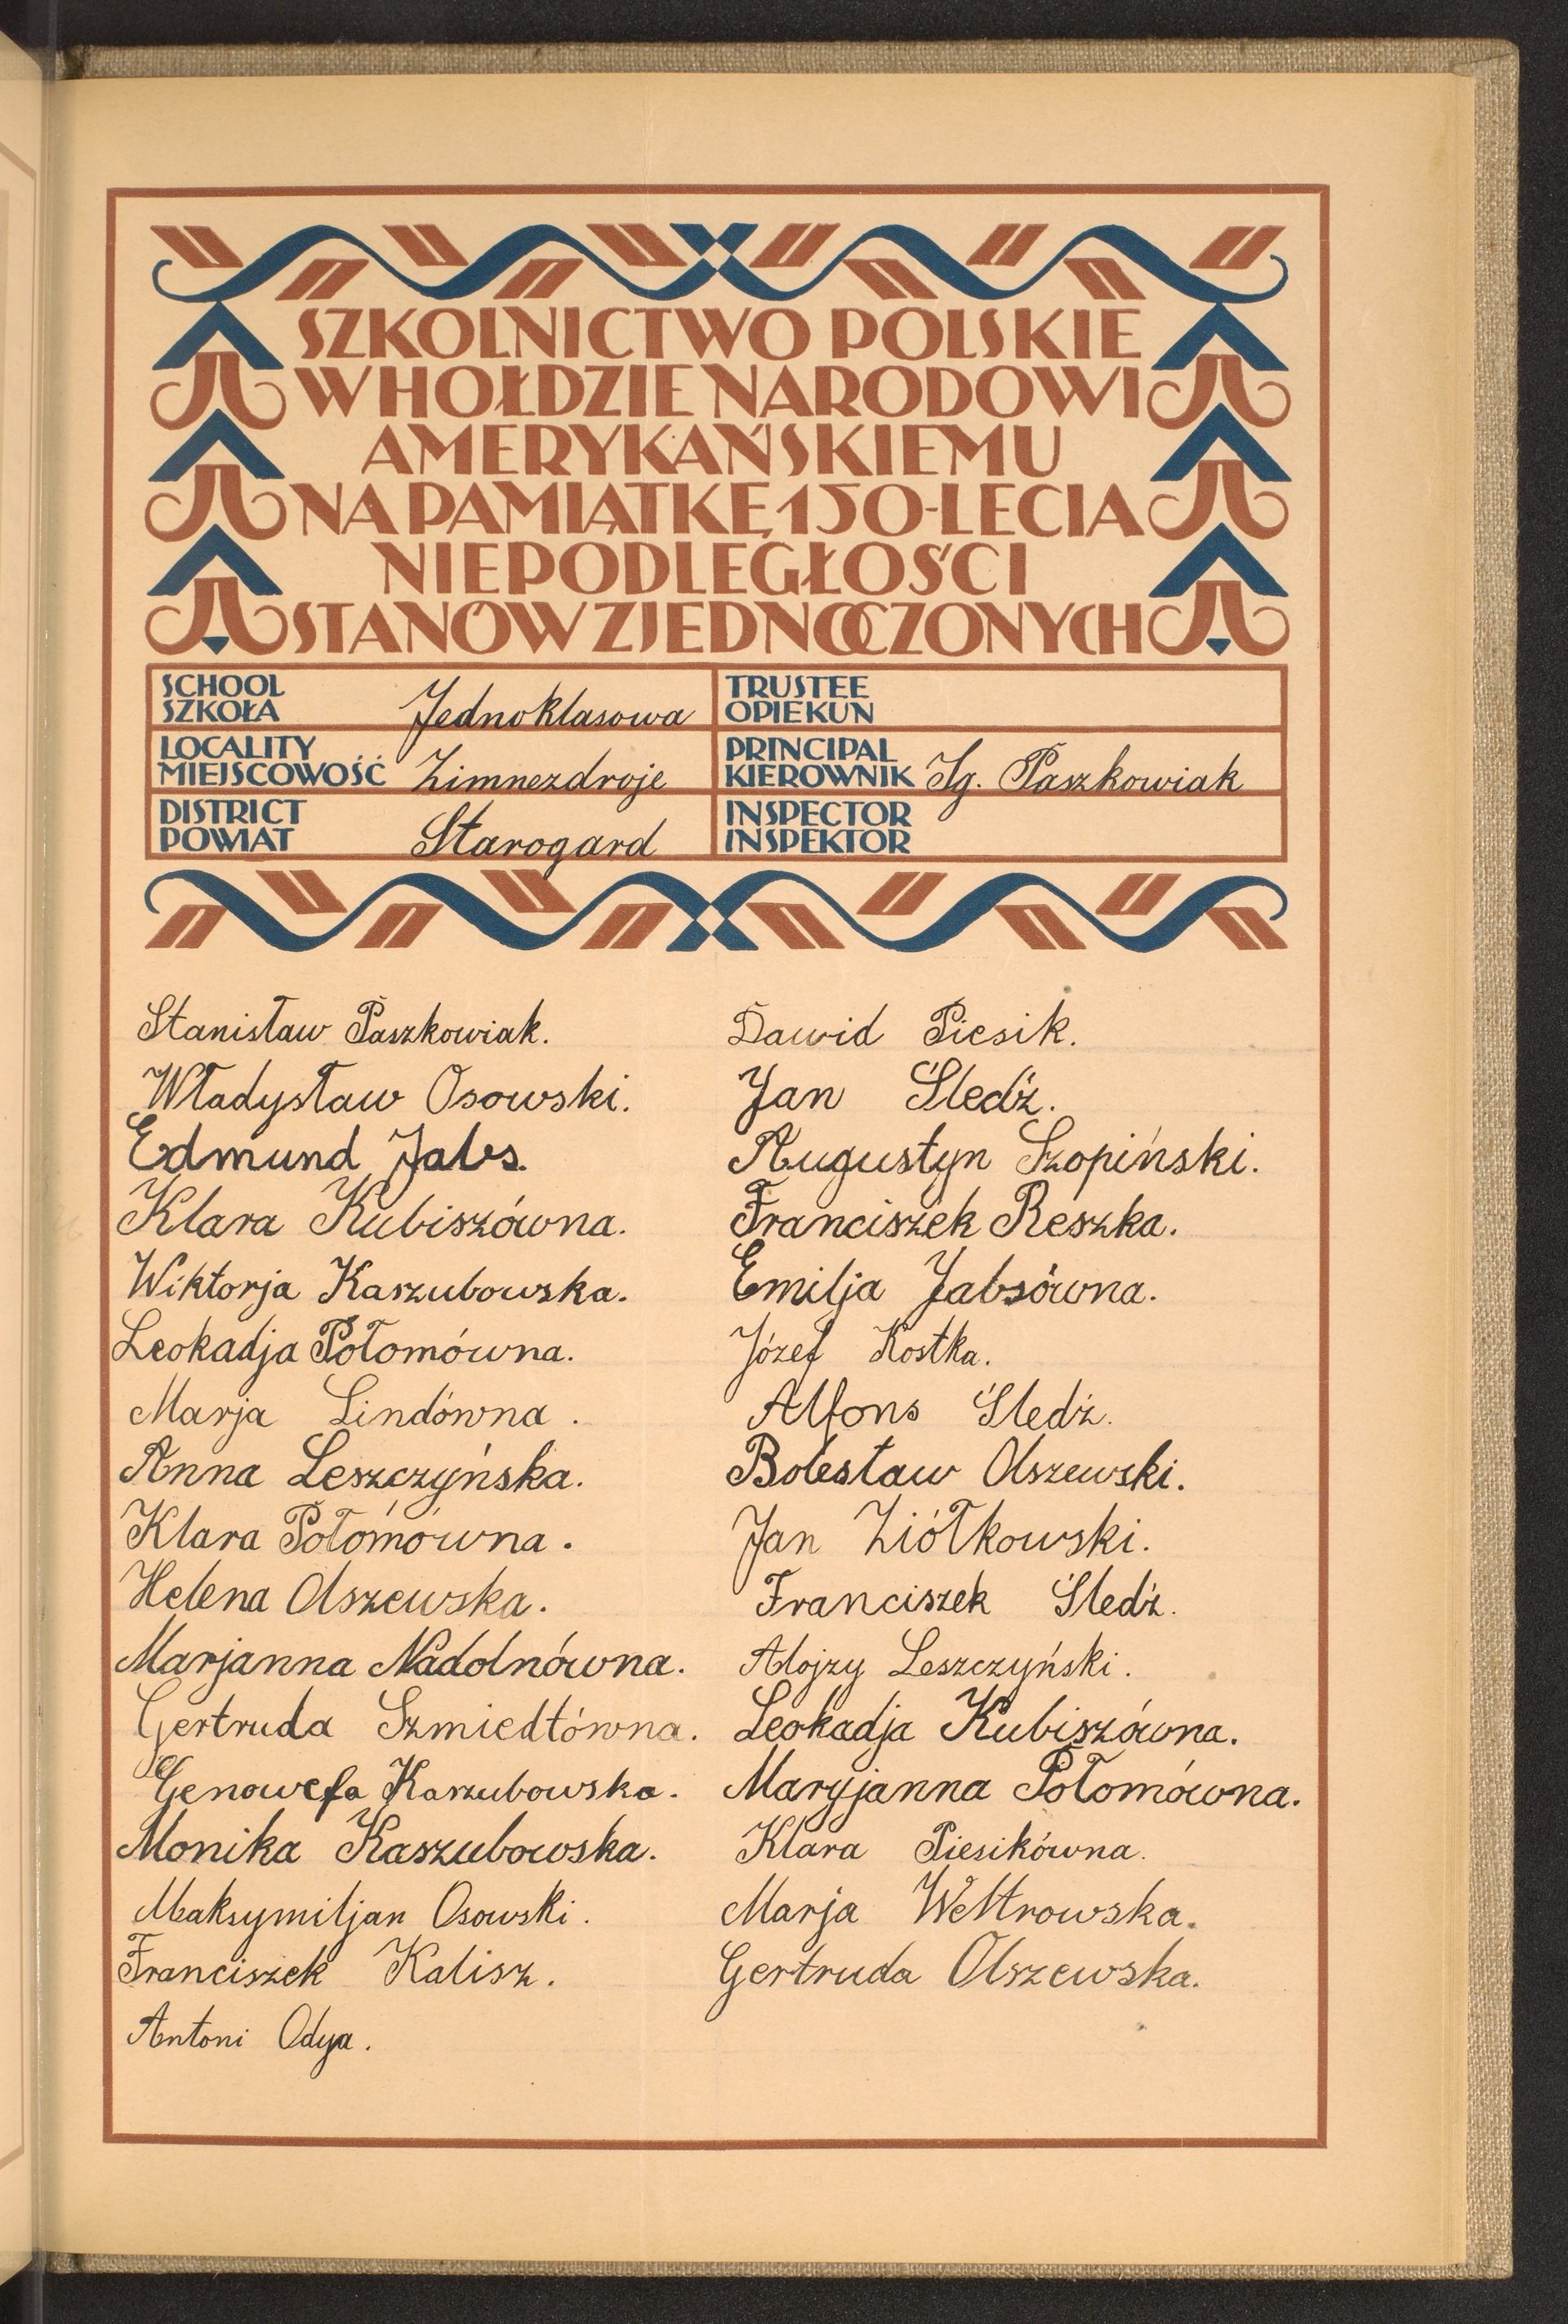 SZKOLNICTWO POLSKIE
W HOŁDZIE NARODOWI
AMERYKAŃSKIEMU
NA PAMIĄTKĘ 150-LECIA
NIEPODLEGŁOŚCI
STANÓW ZJEDNOCZONYCH
SCHOOL
SZKOŁA Jednoklasowa
TRUSTEE
OPIEKUN
LOCALITY
MIEJSCOWOŚĆ Zimnezdroje
PRINCIPAL
KIEROWNIK Ig. Paszkowiak
DISTRICT
POWIAT Starogard
INSPECTOR
INSPEKTOR
Stanisław Paszkowiak.
Władysław Osowski.
Edmund Jabs.
Klara Kubiszówna.
Wiktorja Kaszubowska.
Leokadja Połomówna.
Marja Lindówna.
Anna Leszczyńska.
Klara Połomówna.
Helena Olszewska.
Marjanna Nadolnówna.
Gertruda Szmiedtówna.
Genowefa Kaszubowska.
Monika Kaszubowska.
Maksymiljan Osowski.
Franciszek Kalisz.
Antoni Odya.
Dawid Piesik.
Jan Śledź.
Augustyn Szopiński.
Franciszek Reszka.
Emilja Jabsówna.
Józef Kostka.
Alfons Śledź.
Bolesław Olszewski.
Jan Ziółkowski.
Franciszek Śledź.
Alojzy Leszczyński.
Leokadja Kubiszówna.
Maryjanna Połomówna.
Klara Piesikówna.
Marja Weltrowska.
Gertruda Olszewska.